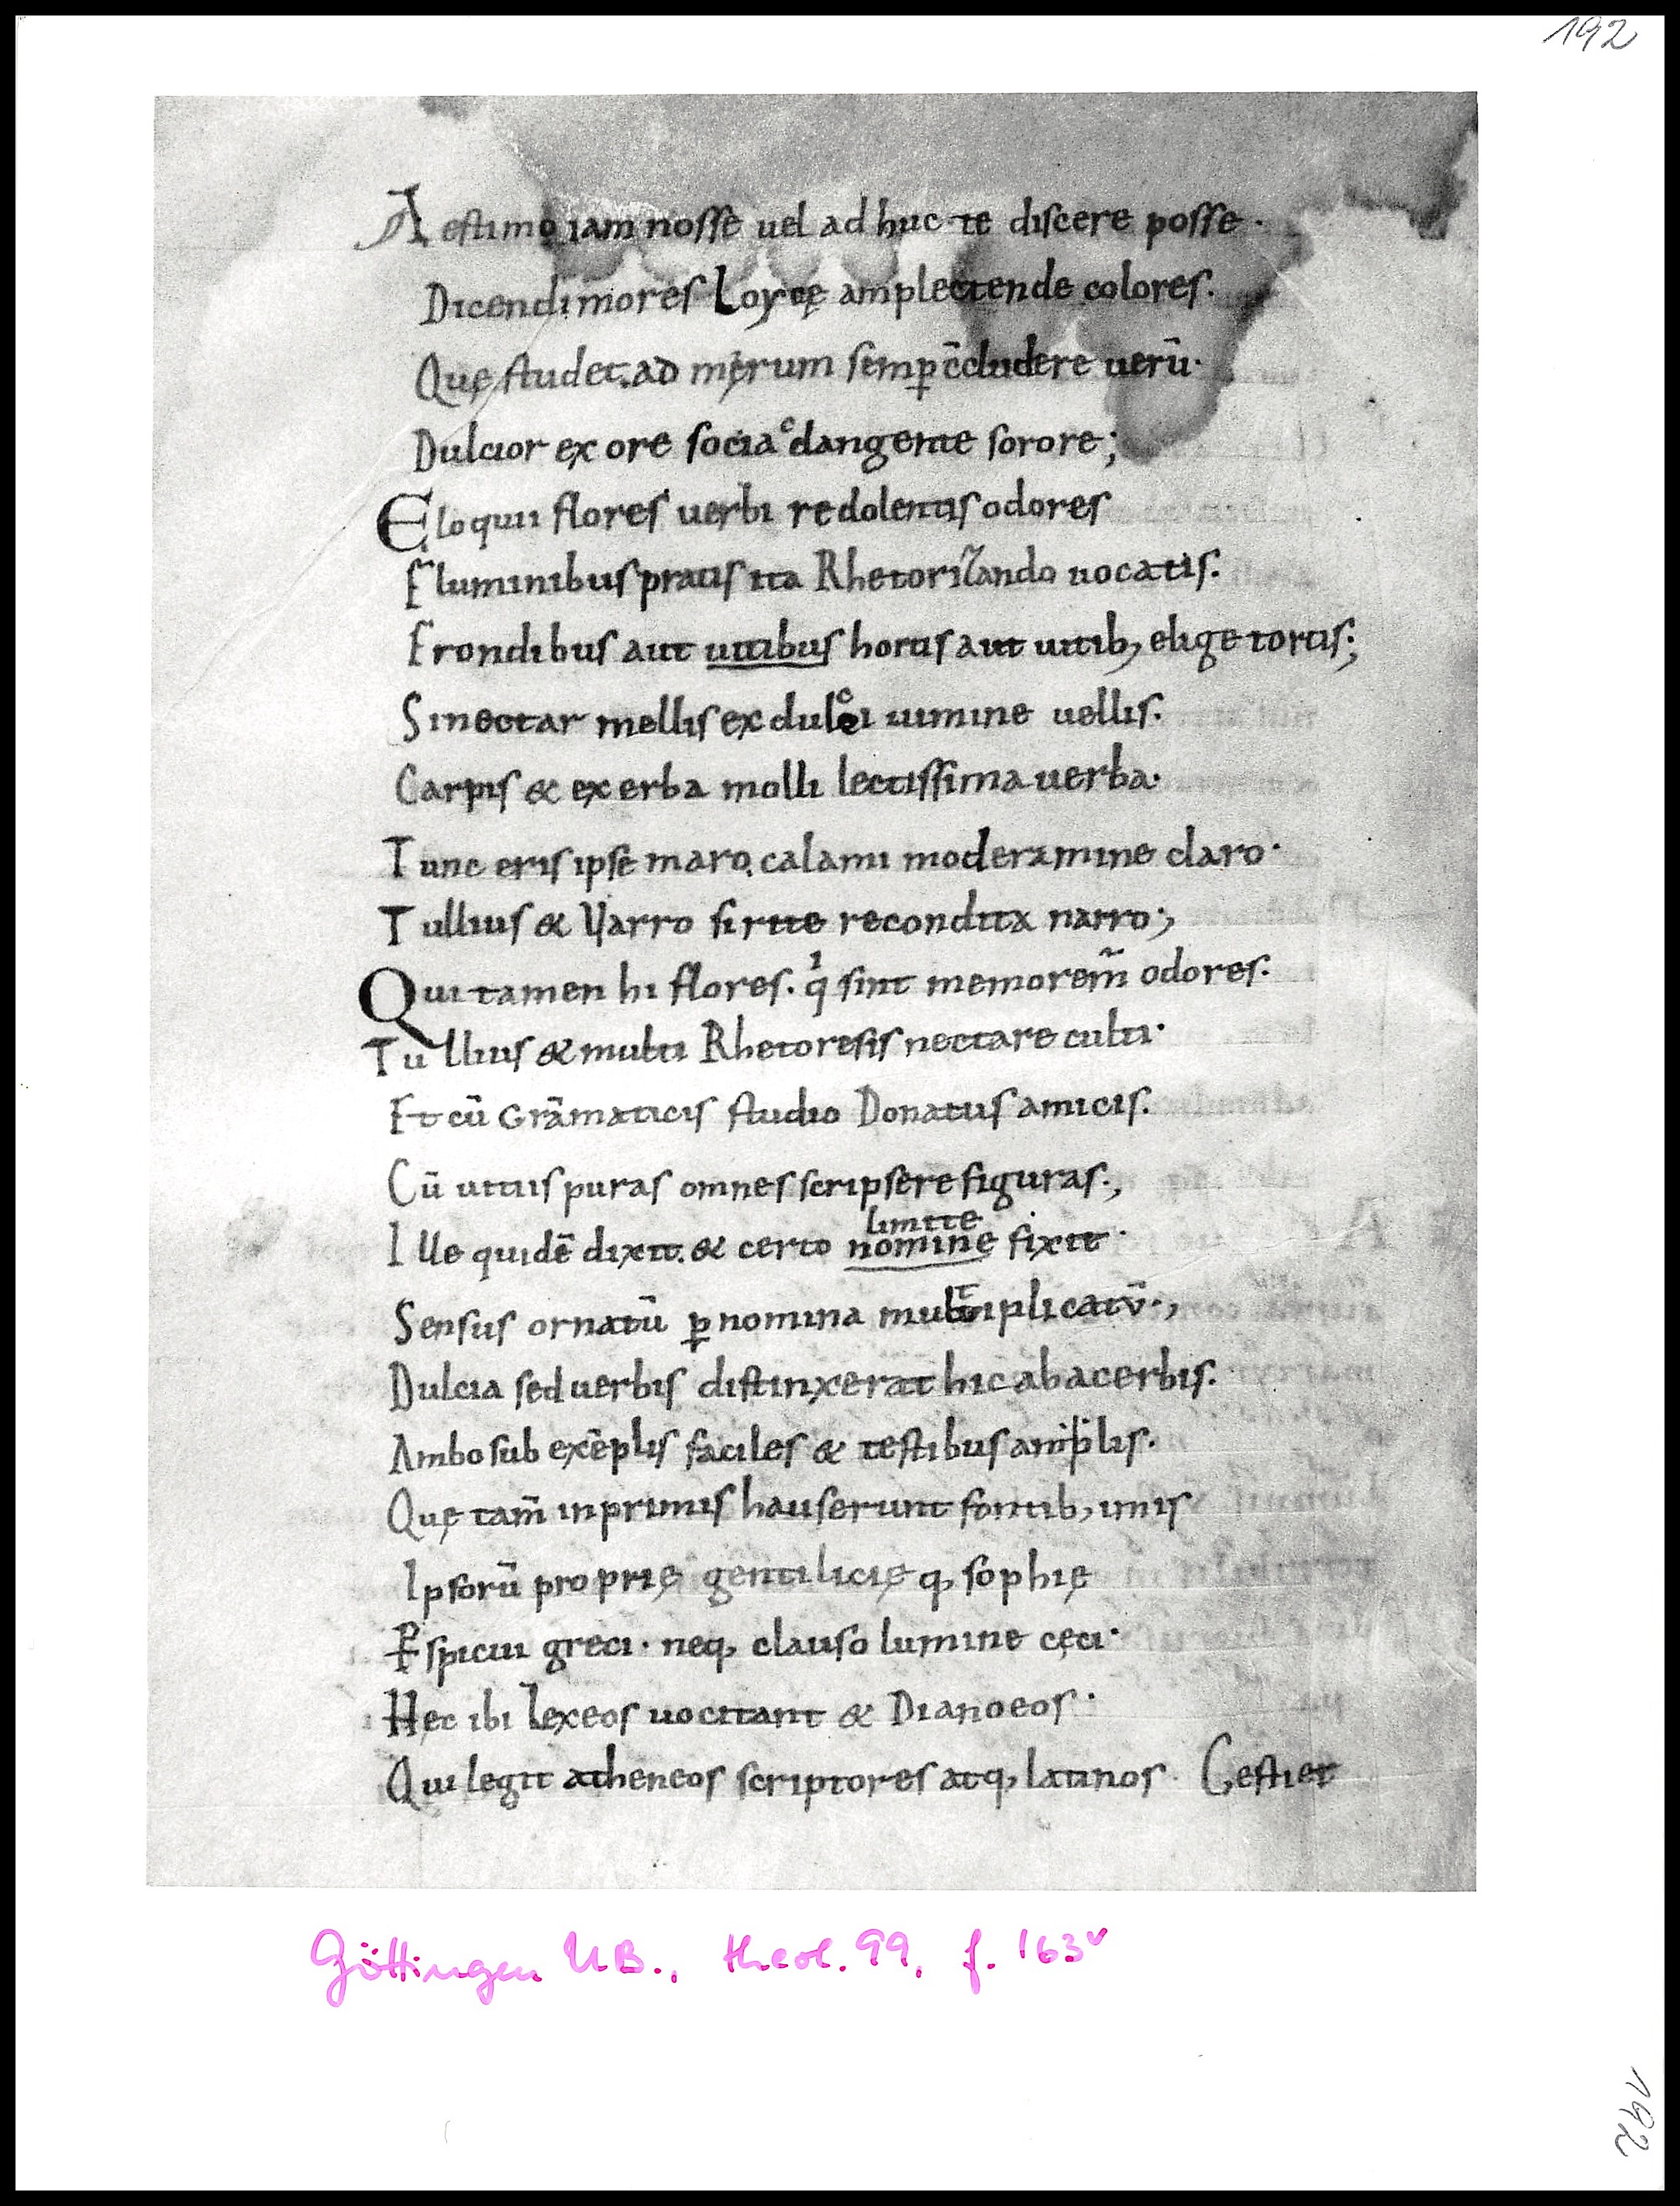 192
Aestimo iam nosse uel ad huc te discere posse .
Dicendi mores Loycę amplectende colores.
Quę studet. ad męrum semp̄ c̄cludere uerū.
Dulcior ex ore socia dangente sorore;
Eloquii flores uerbi redolentis odores
Fluminibus pratis ita Rhetoricando uocatis.
Frondibus aut uitibus hortis aut uitib; elige tortis;
Si nectar mellis ex dulci uimine uellis.
Carpis & ex erba molli lectissima uerba.
Tunc eris ipse maro. calami moderamine claro.
Tullius & Varro si rite recondita narro;
Qui tamen hi flores. qi sint memorem̄ odores.
Tullius & multi Rhetoresis nectare culti.
Et cū Grāmaticis studio Donatus amicis.
Cū uitiis puras omnes scripsere figuras.,
limite
Ille quidē dixit. & certo nomine fixit.
Sensus ornatū p̱ nomina multiplicatū.,
Dulcia sed uerbis distinxerat hic ab acerbis.
Ambo sub exēplis faciles & testibus amplis.
Quę tam̄ in primis hauserunt fontib; imis
Ipsorū proprię gentilicię q; sophię
P̱spicui greci. neq; clauso lumine cęci.
Hec ibi lexeos uocitant & Dianoeos.
Qui legit atheneos scriptores atq; latinos. C,estiet
Göttingen UB., theol. 99, f. 163v
192